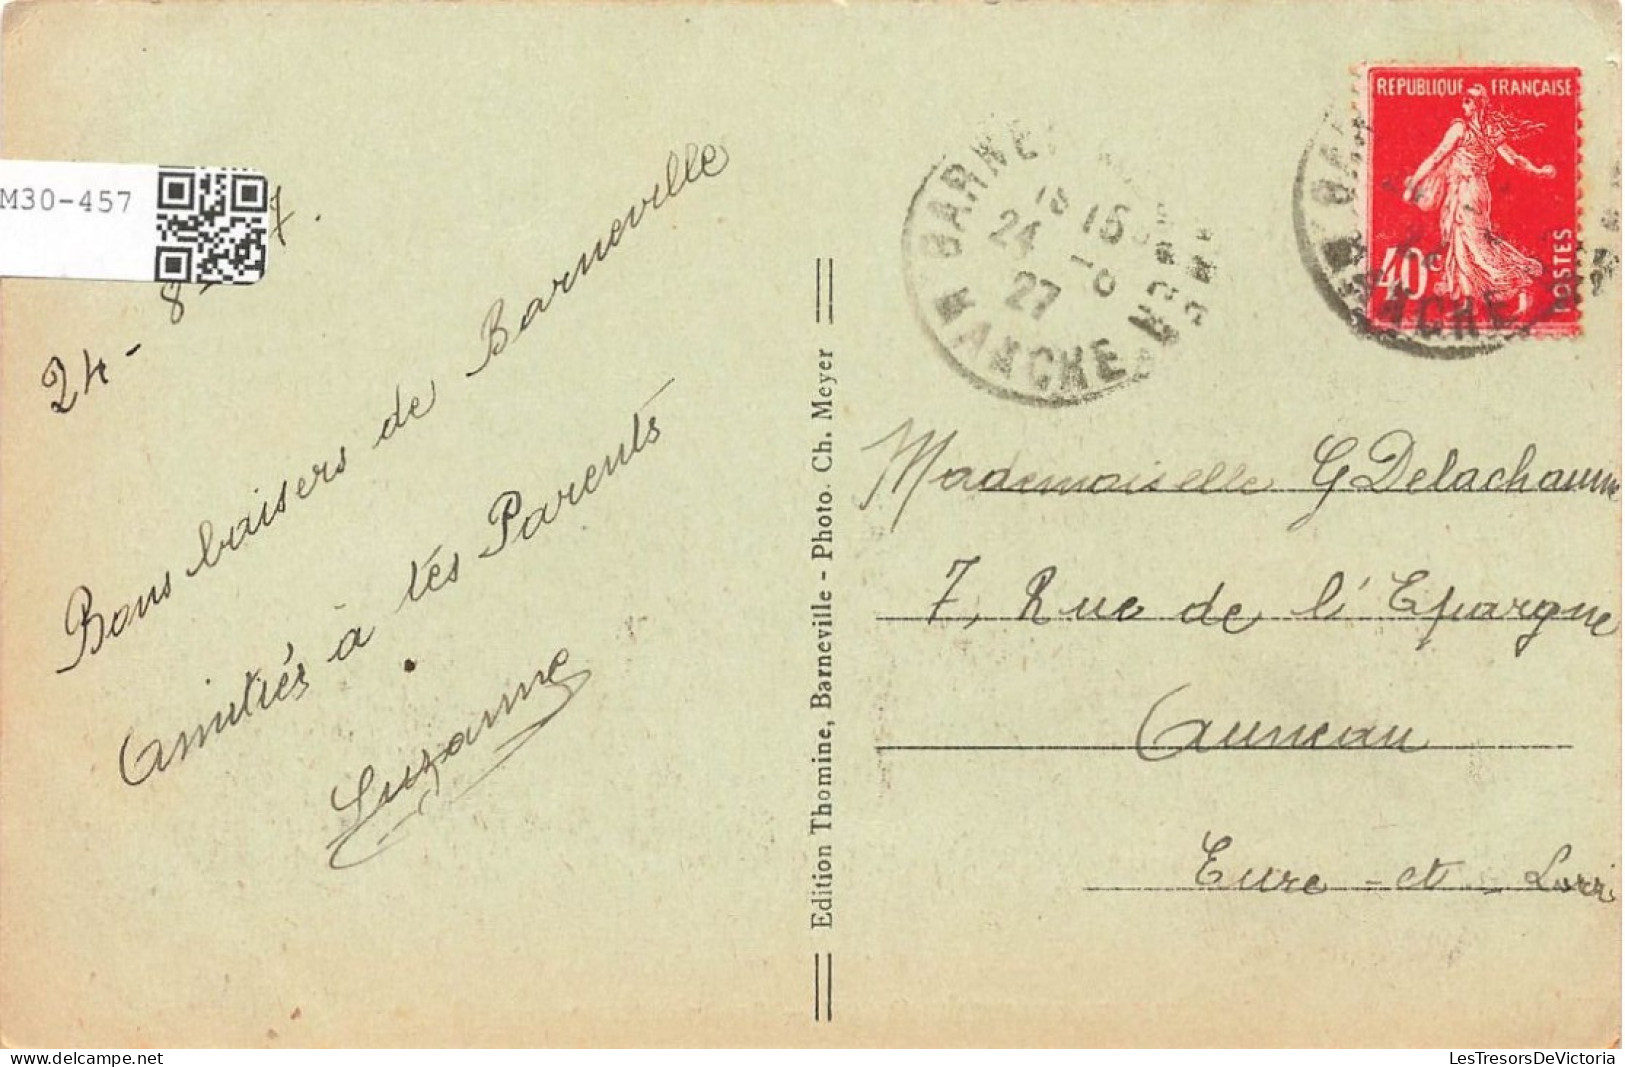 M30-457
24-8-27.
Bons baisers de Barneville
Amitiés à tes Parents
Suzanne
Edition Thomine, Barneville - Photo. Ch. Meyer
REPUBLIQUE FRANÇAISE
40c
POSTES
BARNE
15
24 -8
27
MANCHE
Mademoiselle G Delachaume
7, Rue de l'Epargne
Auneau
Eure-et-Loir
LesTresorsDeVictoria
delcampe.net